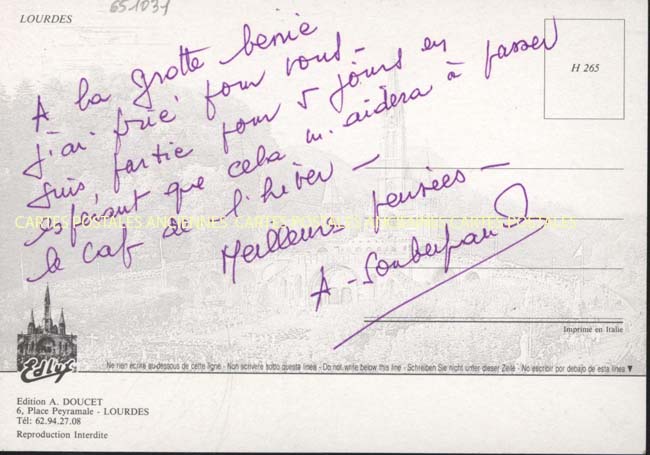 651031
LOURDES
H 265
A la grotte bénie
j'ai prié pour vous -
suis partie pour 5 jours en
espérant que cela m'aidera à passer
le cap de l'hiver -
Meilleures pensées -
A -
CARTES POSTALES ANCIENNES CARTES POSTALES ANCIENNES CARTES POSTALES
Imprimé en Italie
Edlux
Ne rien écrire au-dessous de cette ligne - Non scrivere sotto questa linea - Do not write below this line - Schreiben Sie nicht unter dieser Zeile - No escribir por debajo de esta linea ▼
Edition A. DOUCET
6, Place Peyramale - LOURDES
Tél: 62.94.27.08
Reproduction Interdite